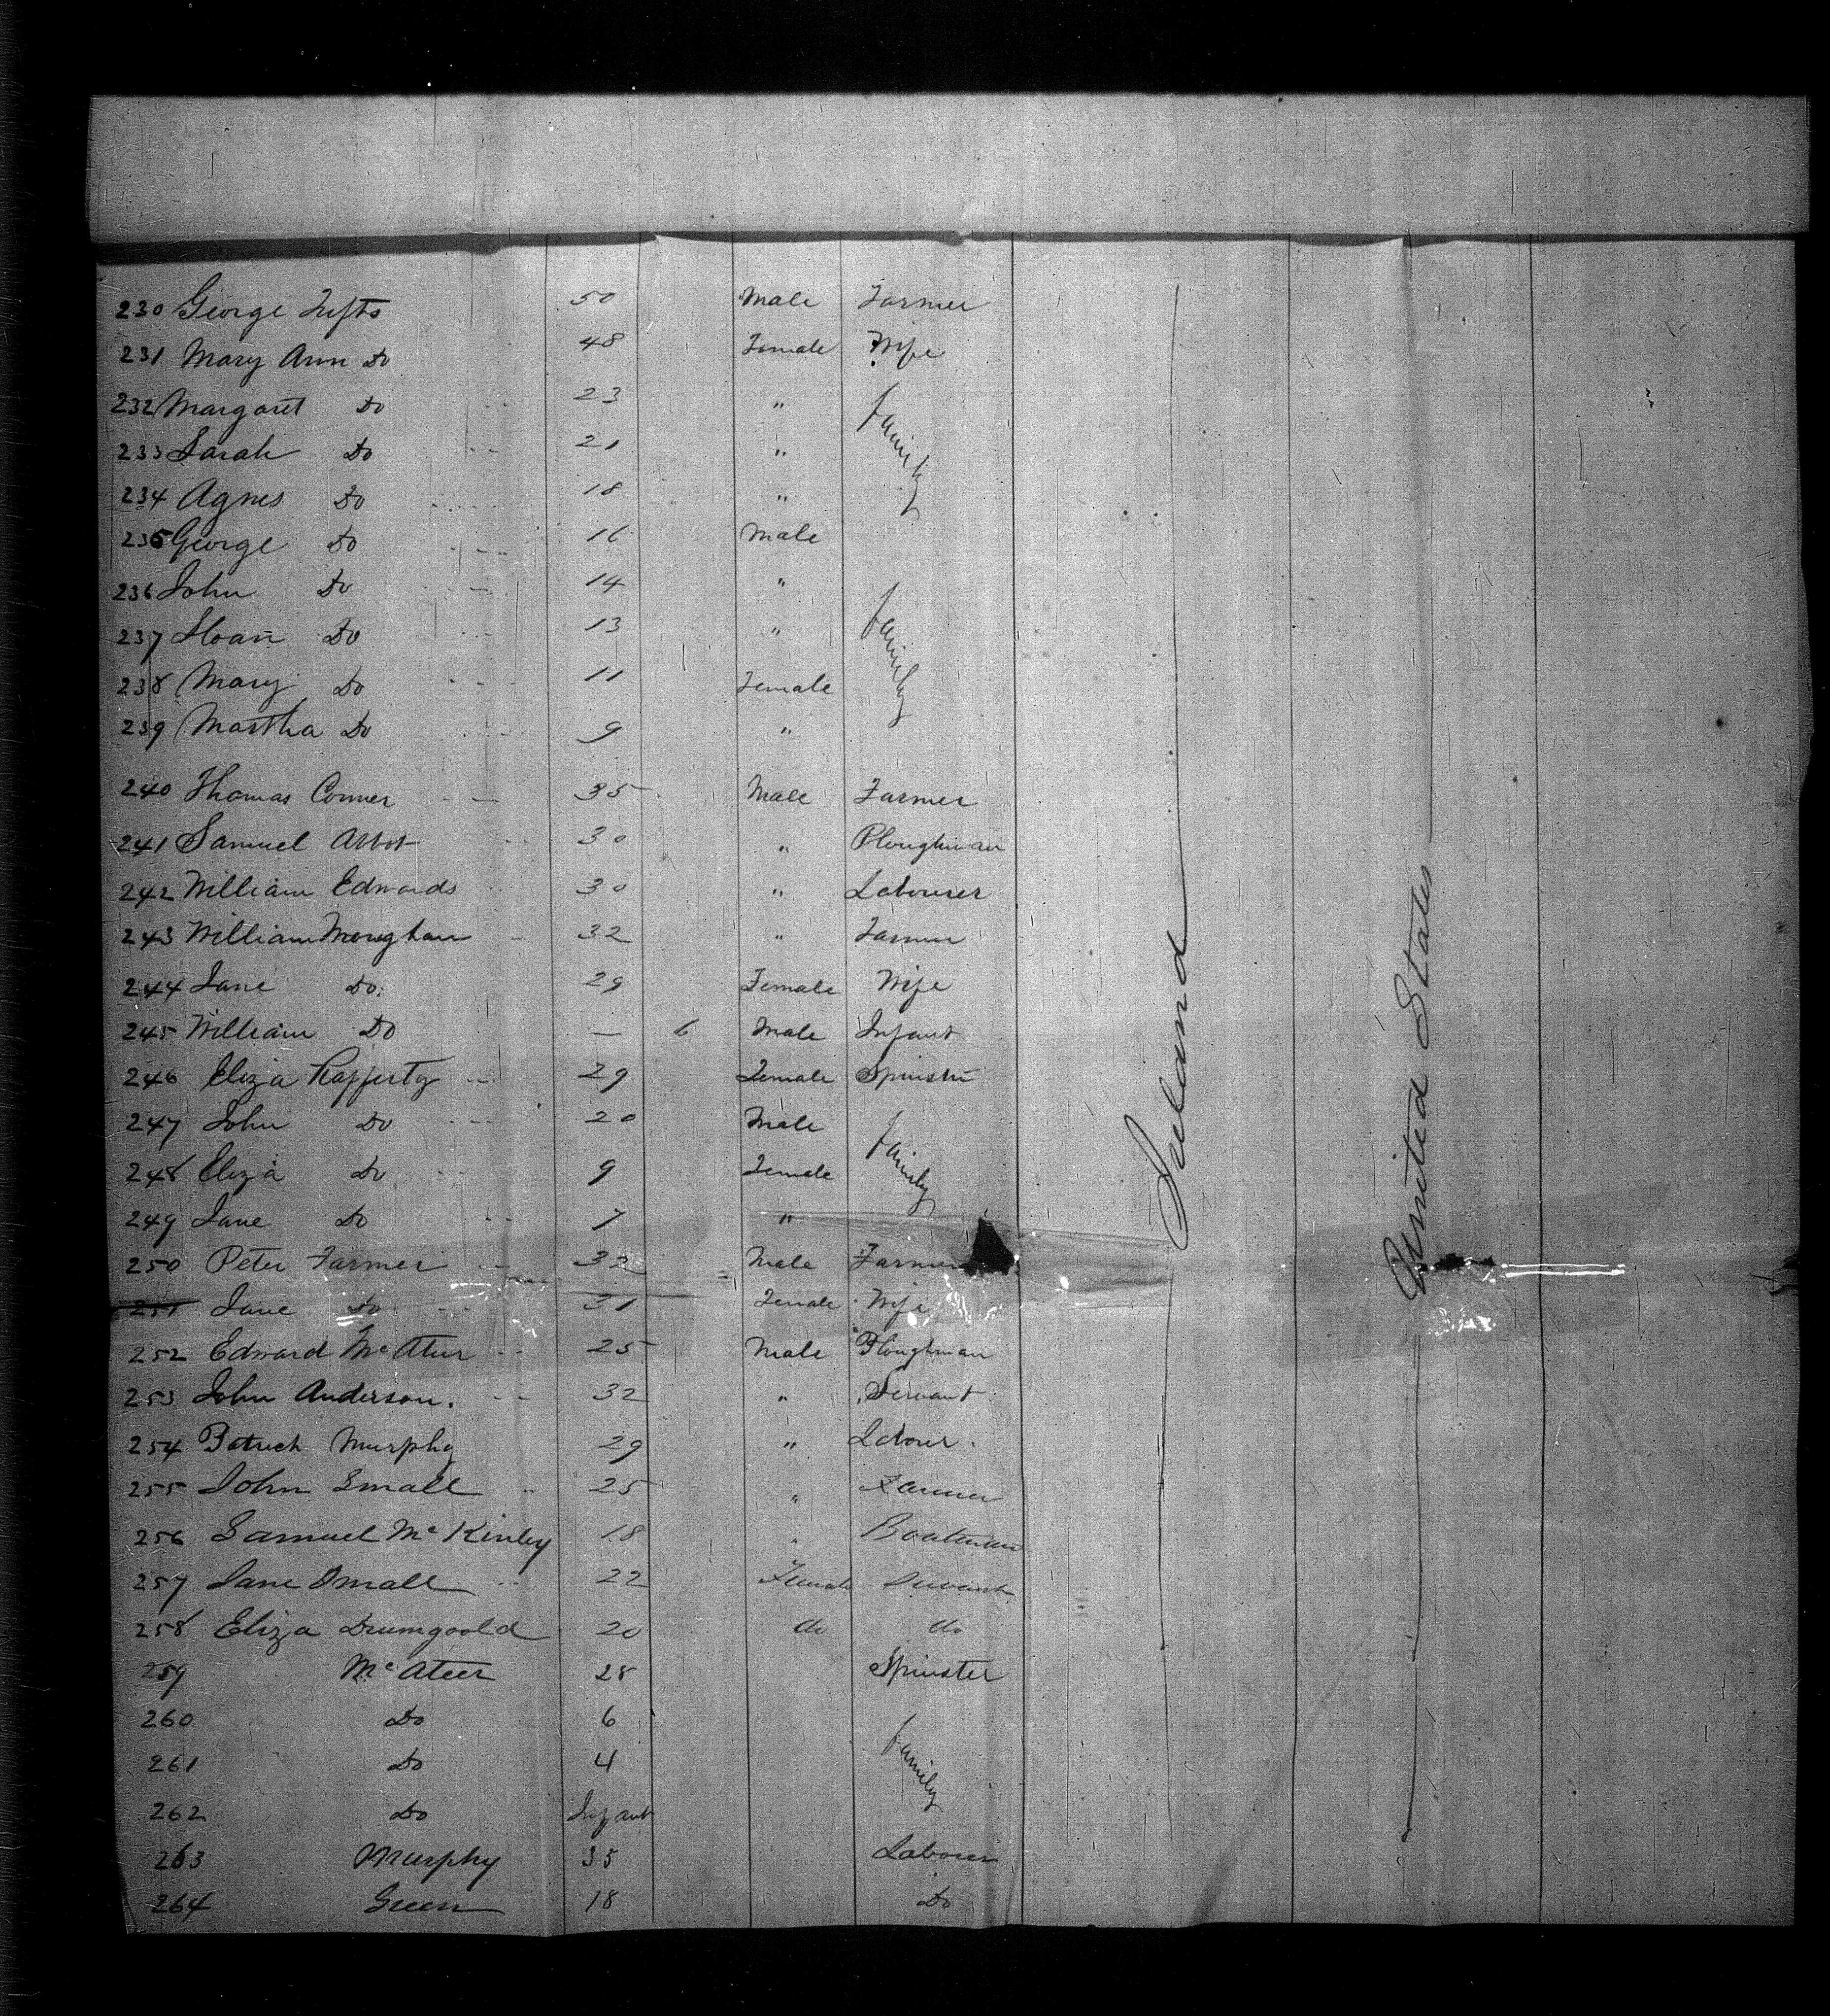 230 George Tufts 50 Male Farmer
231 Mary Ann Do 48 Female Wife
232 Margaret Do 23 "
233 Sarah Do 21 " family
234 Agnes Do 18 "
235 George Do 16 Male
236 John Do 14 "
237 Sloan Do 13 " family
238 Mary Do 11 Female
239 Martha Do 9 "
240 Thomas Conner 35 Male Farmer
241 Samuel Abbot 30 " Ploughman
242 William Edwards 30 " Labourer
243 William Monaghan 32 " Farmer
244 Jane Do. 29 Female Wife
245 William Do — 6 Male Infant
246 Eliza Rafferty 29 Female Spinster
247 John Do 20 Male
248 Eliza Do 9 Female family
249 Jane Do 7 "
250 Peter Farmer 32 Male Farmer
251 Jane Do 31 Female Wife
252 Edward McAteer 25 Male Ploughman
253 John Anderson. 32 " Servant
254 Patrick Murphy 29 " Labour.
255 John Small 25 " Farmer
256 Samuel McKinley 18 " Boatman
257 Jane Small 22 Female Servant
258 Eliza Drumgoold 20 do do
259 McAteer 28 Spinster
260 Do 6
261 Do 4 family
262 Do Infant
263 Murphy 35 Laborer
264 Green 18 Do
Ireland
United States